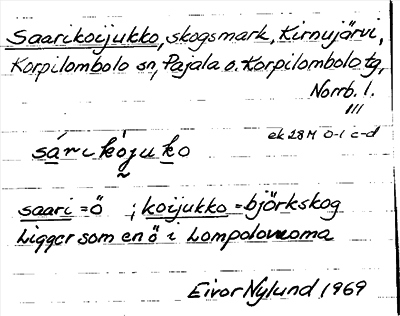 Saarikoijukko, skogsmark, Kirnujärvi,
Korpilombolo sn, Pajala o. Korpilombolo tg,
Norrb. l.
III
ek 28M 0-1 c-d
sárikójuko
saari = ö ; koijukko = björkskog
Ligger som en ö i Lompolovuoma
Eivor Nylund 1969